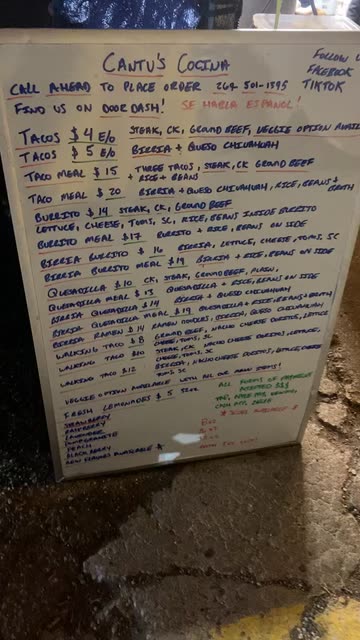 CANTU'S COCINA
CALL AHEAD TO PLACE ORDER 269-501-1395
FOLLOW
FACEBOOK
TIKTOK
FIND US ON DOOR DASH! SE HABLA ESPANOL!
TACOS $4 E/O STEAK, CK, GROUND BEEF, VEGGIE OPTION AVAIL
TACOS $5 E/O BIRRIA + QUESO CHIHUAHUAH
TACO MEAL $15 THREE TACOS, STEAK, CK GROUND BEEF
+ RICE + BEANS
TACO MEAL $20 BIRRIA + QUESO CHIHUAHUAH, RICE, BEANS + BROTH
BURRITO $14 STEAK, CK, GROUND BEEF
LETTUCE, CHEESE, TOMS, SC, RICE, BEANS INSIDE BURRITO
BURRITO MEAL $17 BURRITO + RICE, BEANS ON SIDE
BIRRIA BURRITO $16 BIRRIA, LETTUCE, CHEESE, TOMS, SC
BIRRIA BURRITO MEAL $19 BIRRIA + RICE, BEANS ON SIDE
QUESADILLA $10 CK, STEAK, GROUND BEEF, PLAIN,
QUESADILLA MEAL $15 QUESADILLA + RICE, BEANS ON SIDE
BIRRIA QUESADILLA $14 BIRRIA + QUESO CHIHUAHUAH
BIRRIA QUESADILLA MEAL $19 QUESADILLA + RICE, BEANS + BROTH
BIRRIA RAMEN $14 RAMEN NOODLES, BIRRIA, QUESO CHIHUAHUAH
WALKING TACO $8 GROUND BEEF, NACHO CHEESE DORITOS, LETTUCE
CHEESE, TOMS, SC
WALKING TACO $10 STEAK, CK, NACHO CHEESE DORITOS, LETTUCE,
CHEESE, TOMS, SC
WALKING TACO $12 BIRRIA, NACHO CHEESE DORITOS, LETTUCE, CHEESE
TOMS, SC
VEGGIE OPTION AVAILABLE WITH ALL OUR MENU ITEMS!
FRESH LEMONADES $5
STRAWBERRY
RASPBERRY
LAVENDER
POMEGRANATE
PEACH
BLACKBERRY
NEW FLAVORS AVAILABLE
ALL FORMS OF PAYMENT
ACCEPTED $$$
CASH APP,